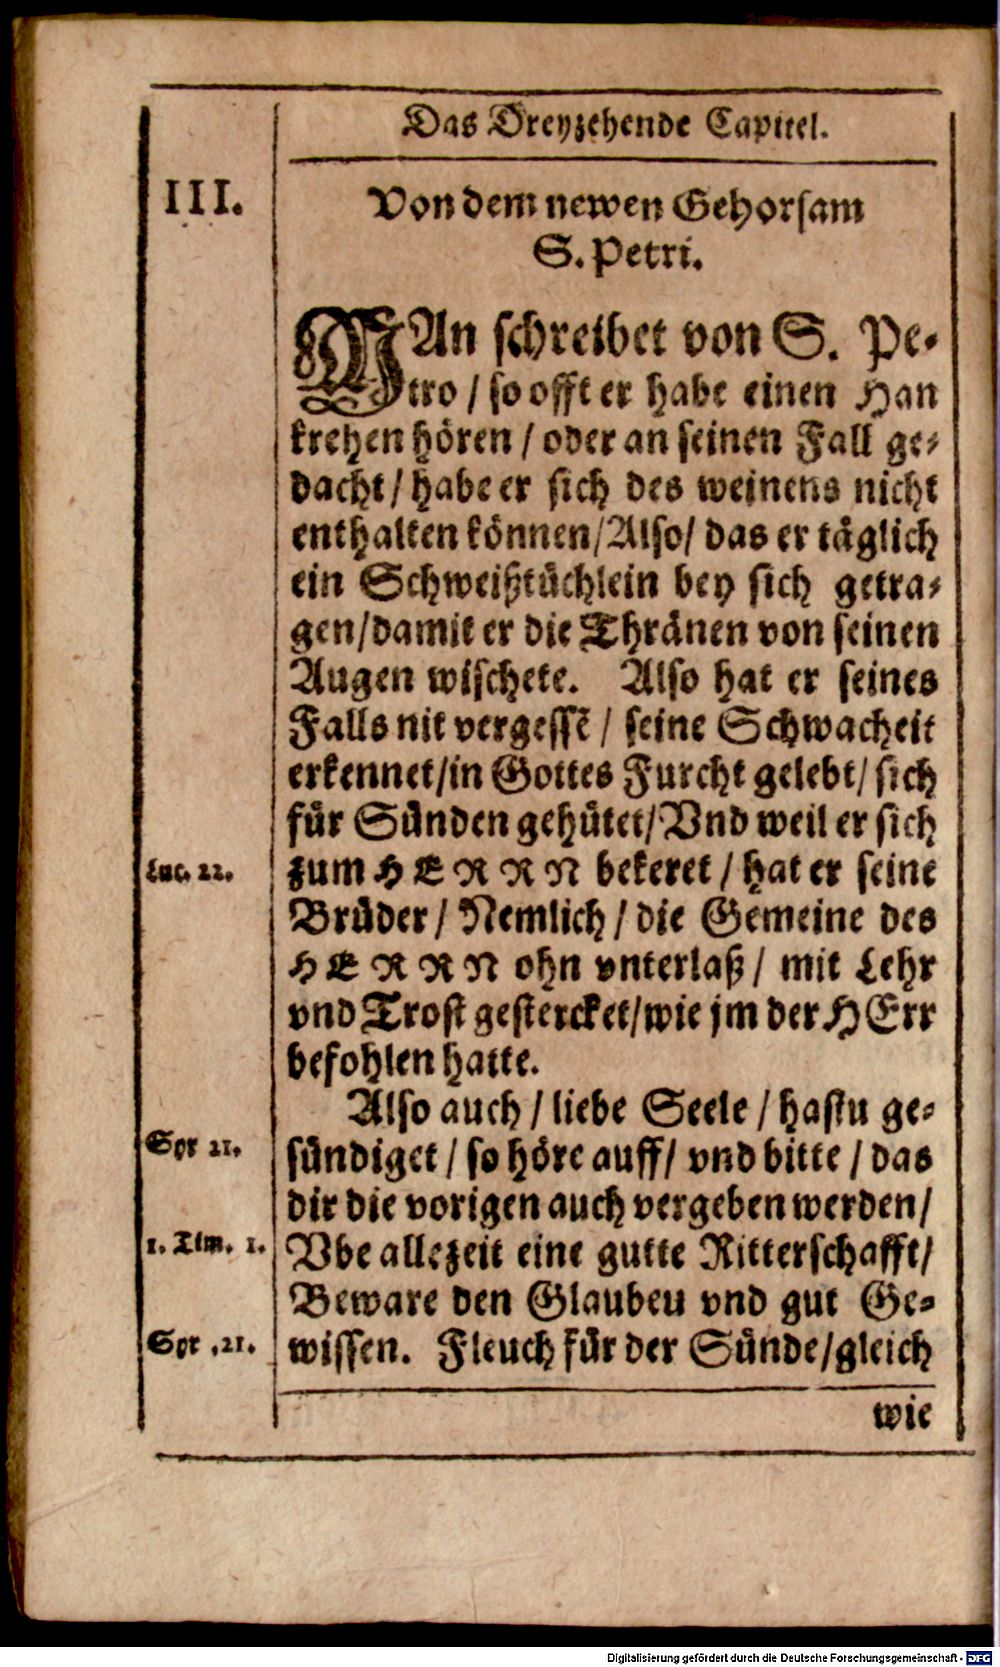 Das Dreyzehende Capitel.
III.
Von dem newen Gehorsam
S. Petri.
MAn schreibet von S. Pe-
tro / so offt er habe einen Han
krehen hören / oder an seinen Fall ge-
dacht / habe er sich des weinens nicht
enthalten können / Also / das er täglich
ein Schweißtüchlein bey sich getra-
gen / damit er die Thränen von seinen
Augen wischete. Also hat er seines
Falls nit vergessẽ / seine Schwacheit
erkennet / in Gottes Furcht gelebt / sich
für Sünden gehütet / Vnd weil er sich
Luc. 22.
zum HERRN bekeret / hat er seine
Brüder / Nemlich / die Gemeine des
HERRN ohn vnterlaß / mit Lehr
vnd Trost gestercket / wie jm der HErr
befohlen hatte.
Also auch / liebe Seele / hastu ge-
Syr 21.
sündiget / so höre auff / vnd bitte / das
dir die vorigen auch vergeben werden /
1. Tim. 1.
Vbe allezeit eine gutte Ritterschafft /
Beware den Glaubeu vnd gut Ge-
Syr .21.
wissen. Fleuch für der Sünde / gleich
wie
Digitalisierung gefördert durch die Deutsche Forschungsgemeinschaft - DFG